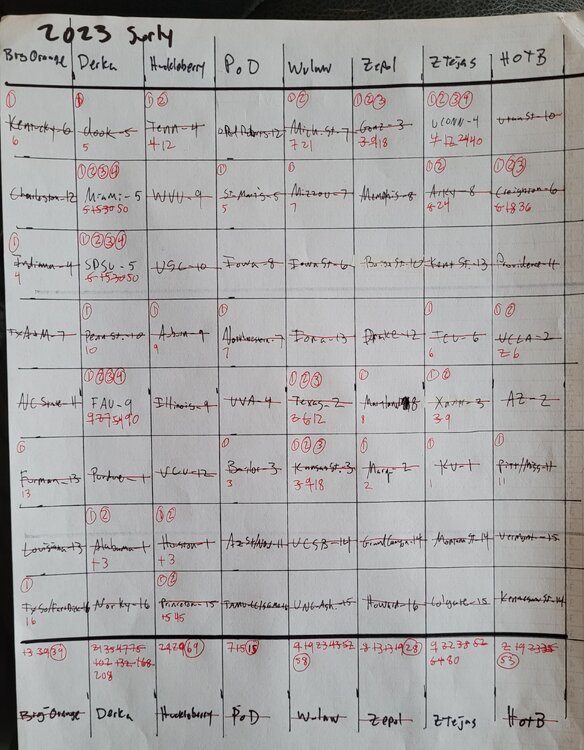 2023 Surly
Brg Orange Derka Huckleberry PoD Wulaw Zepol ZTejas HOTB
① ① ①② ①② ①②③ ①②③④
Kentucky-6 Jook-5 Tenn-4 Mich. St-7 Gonz-3 UCONN-4 Utah St-10
6 5 4 12 7 21 3 9 18 4 12 24 40
①②③④ ① ① ①② ①②③
Charleston-12 Miami-5 WVU-9 St. Mary's-5 Mizzou-7 Memphis-8 Arky-8 Creighton-6
5 15 30 50 5 7 8 24 6 18 36
① ①②③④
Indiana-4 SDSU-5 USC-10 Iowa-8 Iowa St-6 Boise St.-10 Kent St-13 Providence-11
4 5 15 30 50
① ① ① ① ①②
TX A&M-7 Penn St.-10 Auburn-9 Northwestern-7 Iona-13 Drake-12 TCU-6 UCLA-2
10 9 7 6 2 6
①②③④ ①②③ ① ①②
NC State-11 FAU-9 Illinois-9 UVA-4 Texas-2 Maryland-8 Xavi-3 AZ-2
9 27 54 90 2 6 12 8 3 9
① ① ①②③ ① ① ①
Furman-13 Purdue-1 VCU-12 Baylor-3 Kansas St-3 Marq-2 KU-1 Pitt/Miss-11
13 3 3 9 18 2 1 11
①② ①②
Louisiana-13 Alabama-1 Houston-1 AZ St/Nev-11 UCSB-14 Grand Canyon-14 Montana St-14 Vermont-15
+3 +3
① ①②
TxSo/FarDic-16 Norky-16 Princeton-15 TAMUCC/SEMO-16 UNC Ash.-15 Howard-16 Colgate-15 Kennesaw St-14
16 15 45
13 39 39 21 35 47 75 24 29 69 7 15 15 9 19 23 43 52 8 13 13 19 28 9 32 38 52 2 19 23 35
102 132 168 58 64 80 53
208
Brg Orange Derka Huckleberry PoD Wulaw Zepol ZTejas HOTB